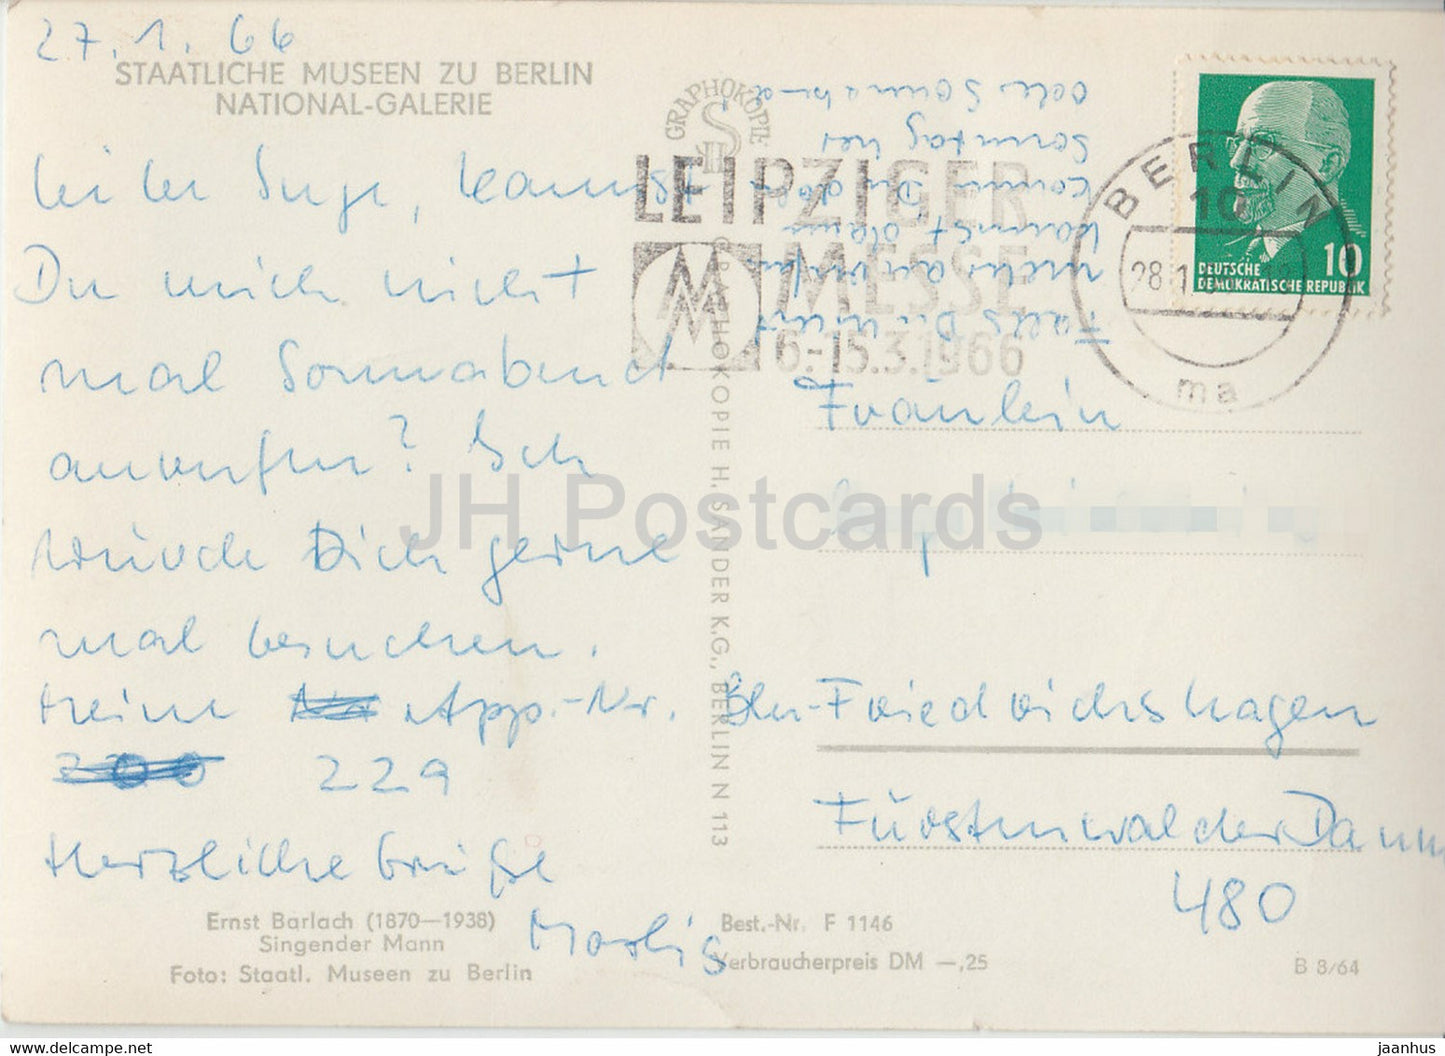 27.1.66
STAATLICHE MUSEEN ZU BERLIN
NATIONAL-GALERIE
Liebe Inge, kannst
Du mich nicht
mal Sonnabend
anrufen? Ich
würde Dich gerne
mal besuchen.
Meine App.-Nr.
229
Herzliche Grüße
Marlis
Ernst Barlach (1870—1938)
Singender Mann
Foto: Staatl. Museen zu Berlin
GRAPHOKOPIE
SH
GRAPHOKOPIE H. SANDER K.G., BERLIN N 113
LEIPZIGER
MESSE
6.-15.3.1966
MM
Falls Du nicht
mich anrufst
kannst dann
komm
Sonntag her
oder Sonnabend
BERLIN
10
28.1.
ma
10
DEUTSCHE
DEMOKRATISCHE REPUBLIK
Fräulein
Bln-Friedrichshagen
Fürstenwalder Damm
480
Best.-Nr. F 1146
Verbraucherpreis DM —,25
B 3/64
JH Postcards
eestistuff.com
jaanhus